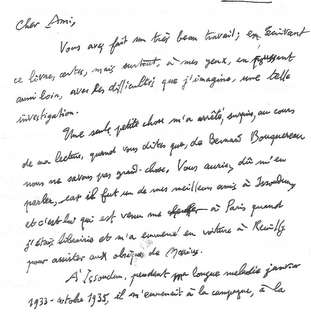 Cher Ami,
Vous avez fait un très beau travail; en écrivant
ce livre, certes, mais surtout, à mes yeux, en poussant
aussi loin, avec les difficultés que j'imagine, une telle
investigation.
Une seule petite chose m'a arrêté, surpris, au cours
de ma lecture, quand vous dites que, de Bernard Bouquereau
nous ne savons pas grand-chose. Vous auriez dû m'en
parler, car il fut un de mes meilleurs amis à Issoudun,
et c'est lui qui est venu me à Paris quand
j'étais libraire et m'a emmené en voiture à Reuilly
pour assister aux obsèques de
A Issoudun, pendant ma longue maladie janvier
1933 - octobre 1935, il m'emmenait à la campagne, à la